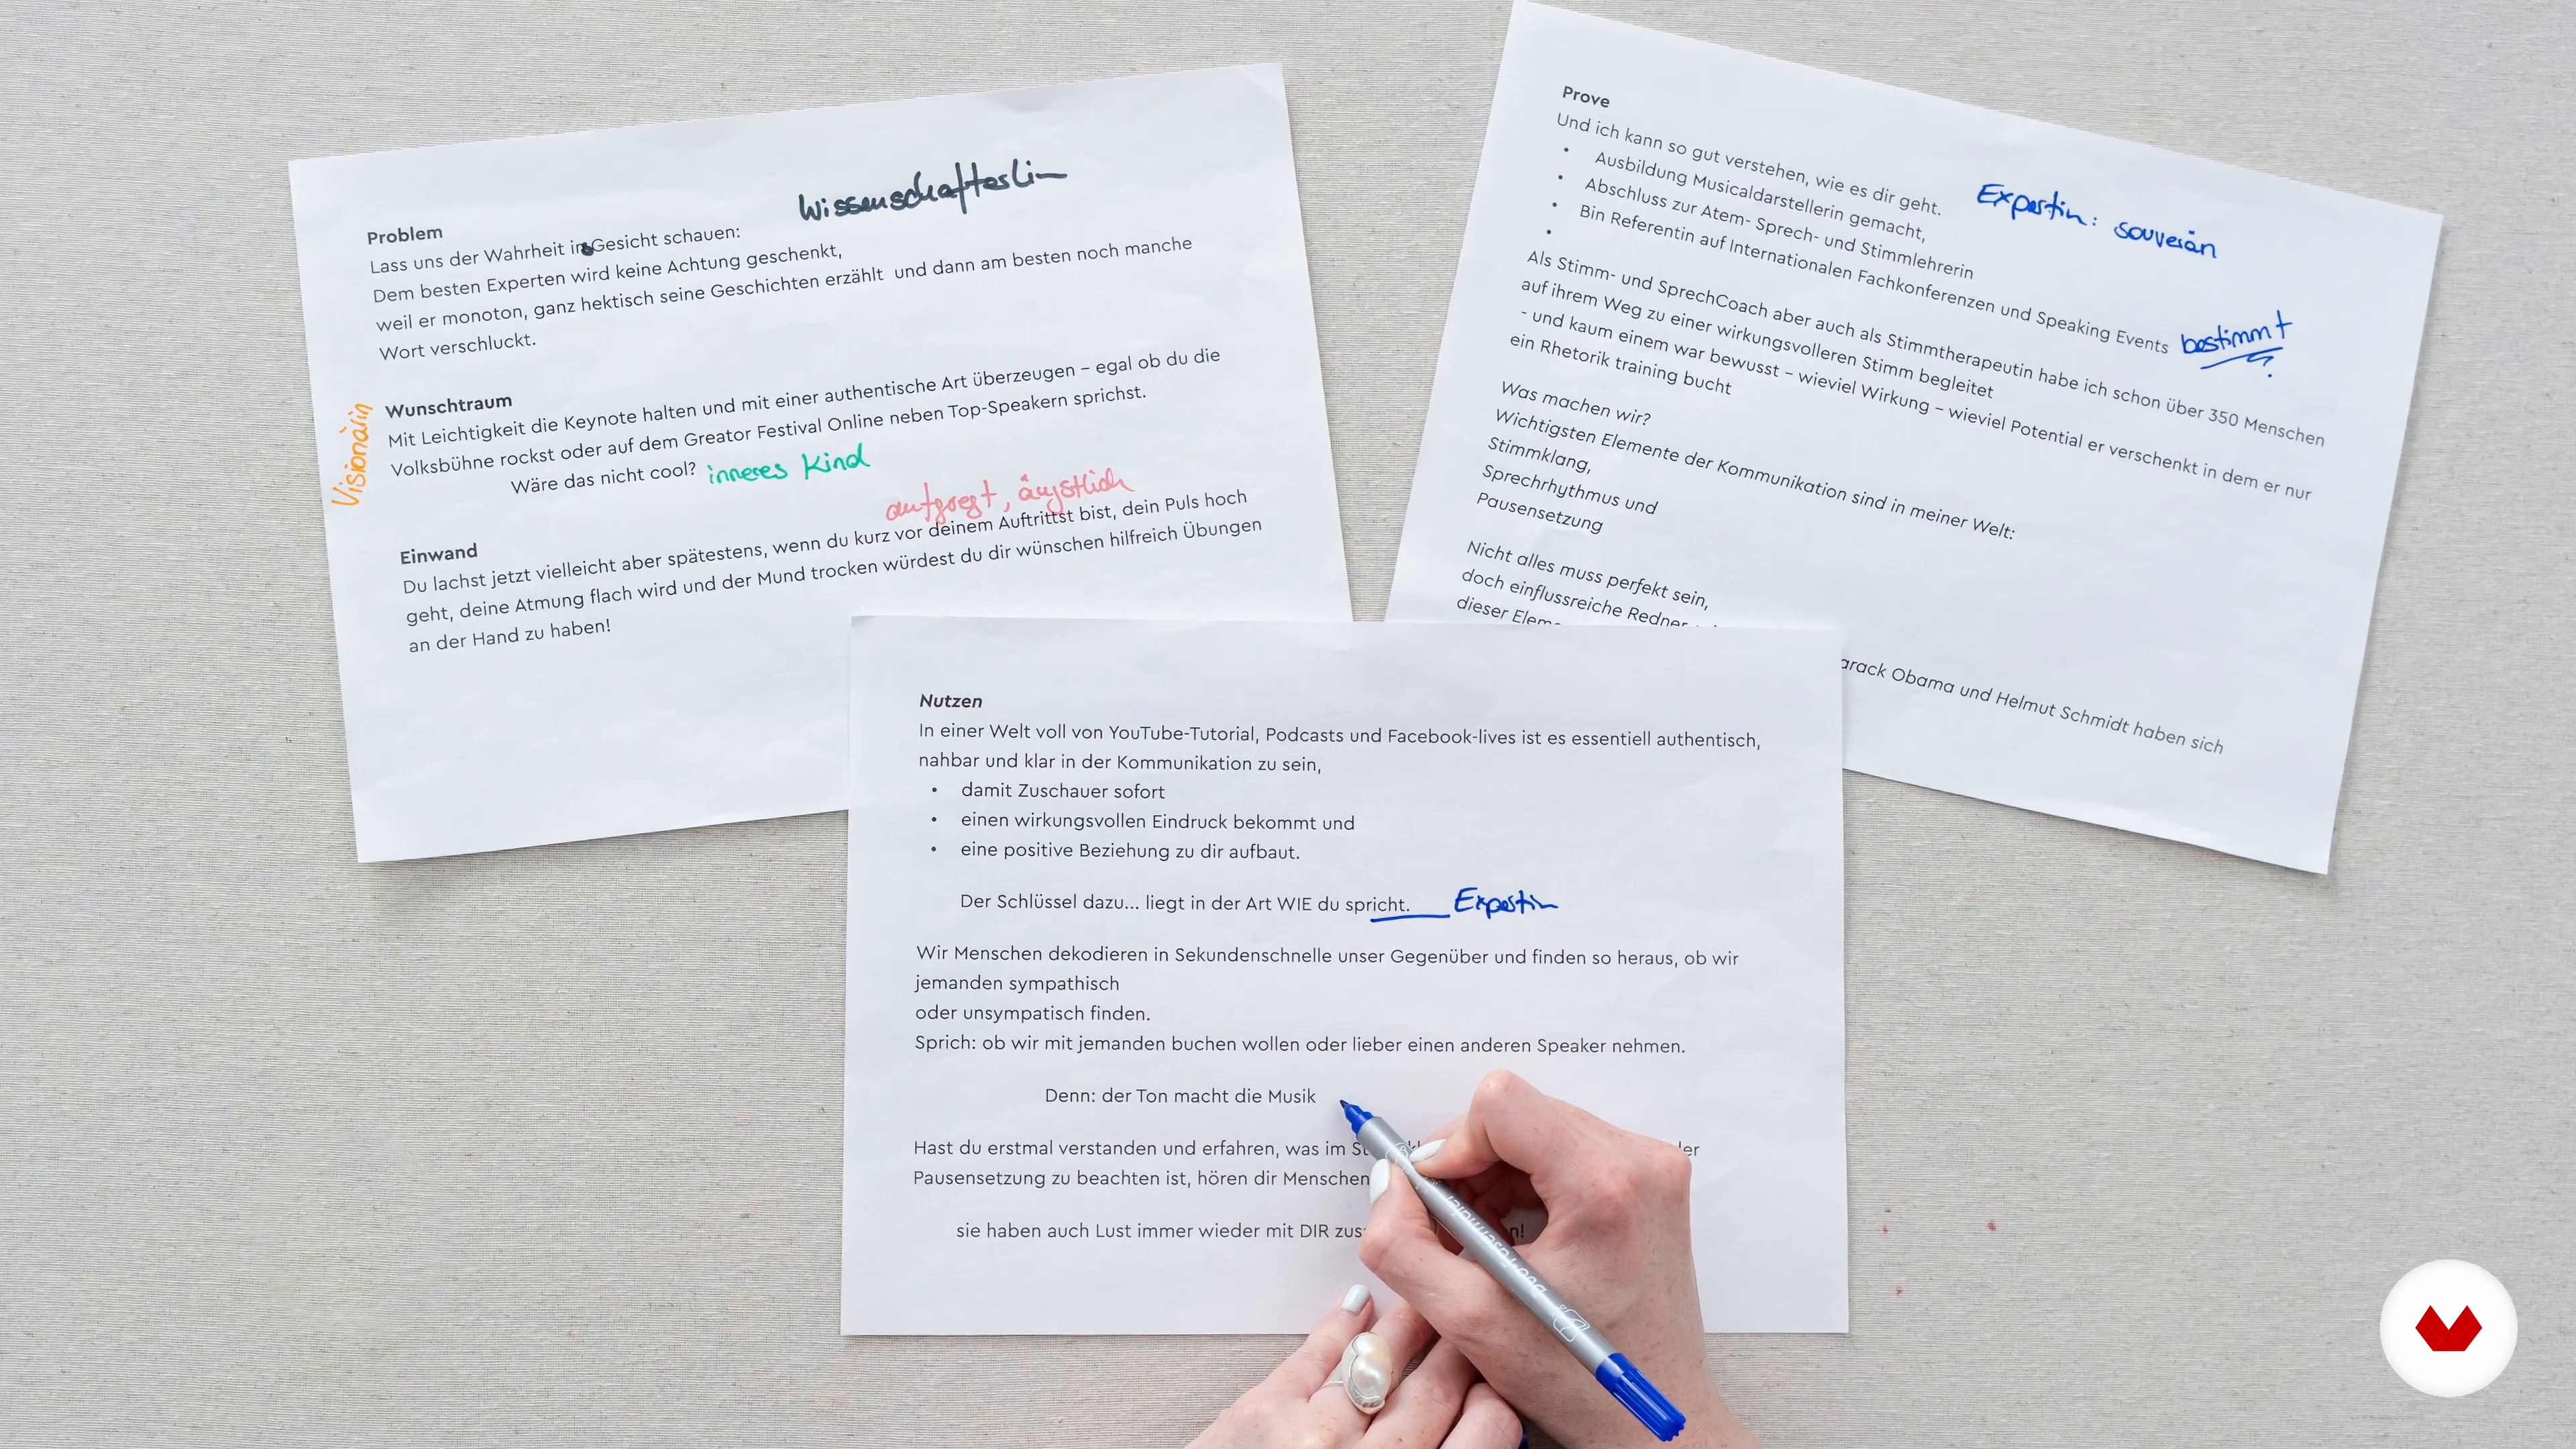 Wissenschaftlerin
Problem
Lass uns der Wahrheit ins Gesicht schauen:
Dem besten Experten wird keine Achtung geschenkt,
weil er monoton, ganz hektisch seine Geschichten erzählt und dann am besten noch manche
Wort verschluckt.
Visionärin
Wunschtraum
Mit Leichtigkeit die Keynote halten und mit einer authentische Art überzeugen – egal ob du die
Volksbühne rockst oder auf dem Greator Festival Online neben Top-Speakern sprichst.
Wäre das nicht cool? inneres Kind
aufgregt, ängstlich
Einwand
Du lachst jetzt vielleicht aber spätestens, wenn du kurz vor deinem Auftrittst bist, dein Puls hoch
geht, deine Atmung flach wird und der Mund trocken würdest du dir wünschen hilfreich Übungen
an der Hand zu haben!
Prove
Und ich kann so gut verstehen, wie es dir geht.
Expertin: souverän
• Ausbildung Musicaldarstellerin gemacht,
• Abschluss zur Atem- Sprech- und Stimmlehrerin
• Bin Referentin auf Internationalen Fachkonferenzen und Speaking Events bestimmt
•
Als Stimm- und SprechCoach aber auch als Stimmtherapeutin habe ich schon über 350 Menschen
auf ihrem Weg zu einer wirkungsvolleren Stimm begleitet
- und kaum einem war bewusst – wieviel Wirkung – wieviel Potential er verschenkt in dem er nur
ein Rhetorik training bucht
Was machen wir?
Wichtigsten Elemente der Kommunikation sind in meiner Welt:
Stimmklang,
Sprechrhythmus und
Pausensetzung
Nicht alles muss perfekt sein,
doch einflussreiche Redner
dieser Elem
arack Obama und Helmut Schmidt haben sich
Nutzen
In einer Welt voll von YouTube-Tutorial, Podcasts und Facebook-lives ist es essentiell authentisch,
nahbar und klar in der Kommunikation zu sein,
• damit Zuschauer sofort
• einen wirkungsvollen Eindruck bekommt und
• eine positive Beziehung zu dir aufbaut.
Der Schlüssel dazu... liegt in der Art WIE du spricht. Expertin
Wir Menschen dekodieren in Sekundenschnelle unser Gegenüber und finden so heraus, ob wir
jemanden sympathisch
oder unsympatisch finden.
Sprich: ob wir mit jemanden buchen wollen oder lieber einen anderen Speaker nehmen.
Denn: der Ton macht die Musik
Hast du erstmal verstanden und erfahren, was im St
Pausensetzung zu beachten ist, hören dir Menschen
sie haben auch Lust immer wieder mit DIR zus